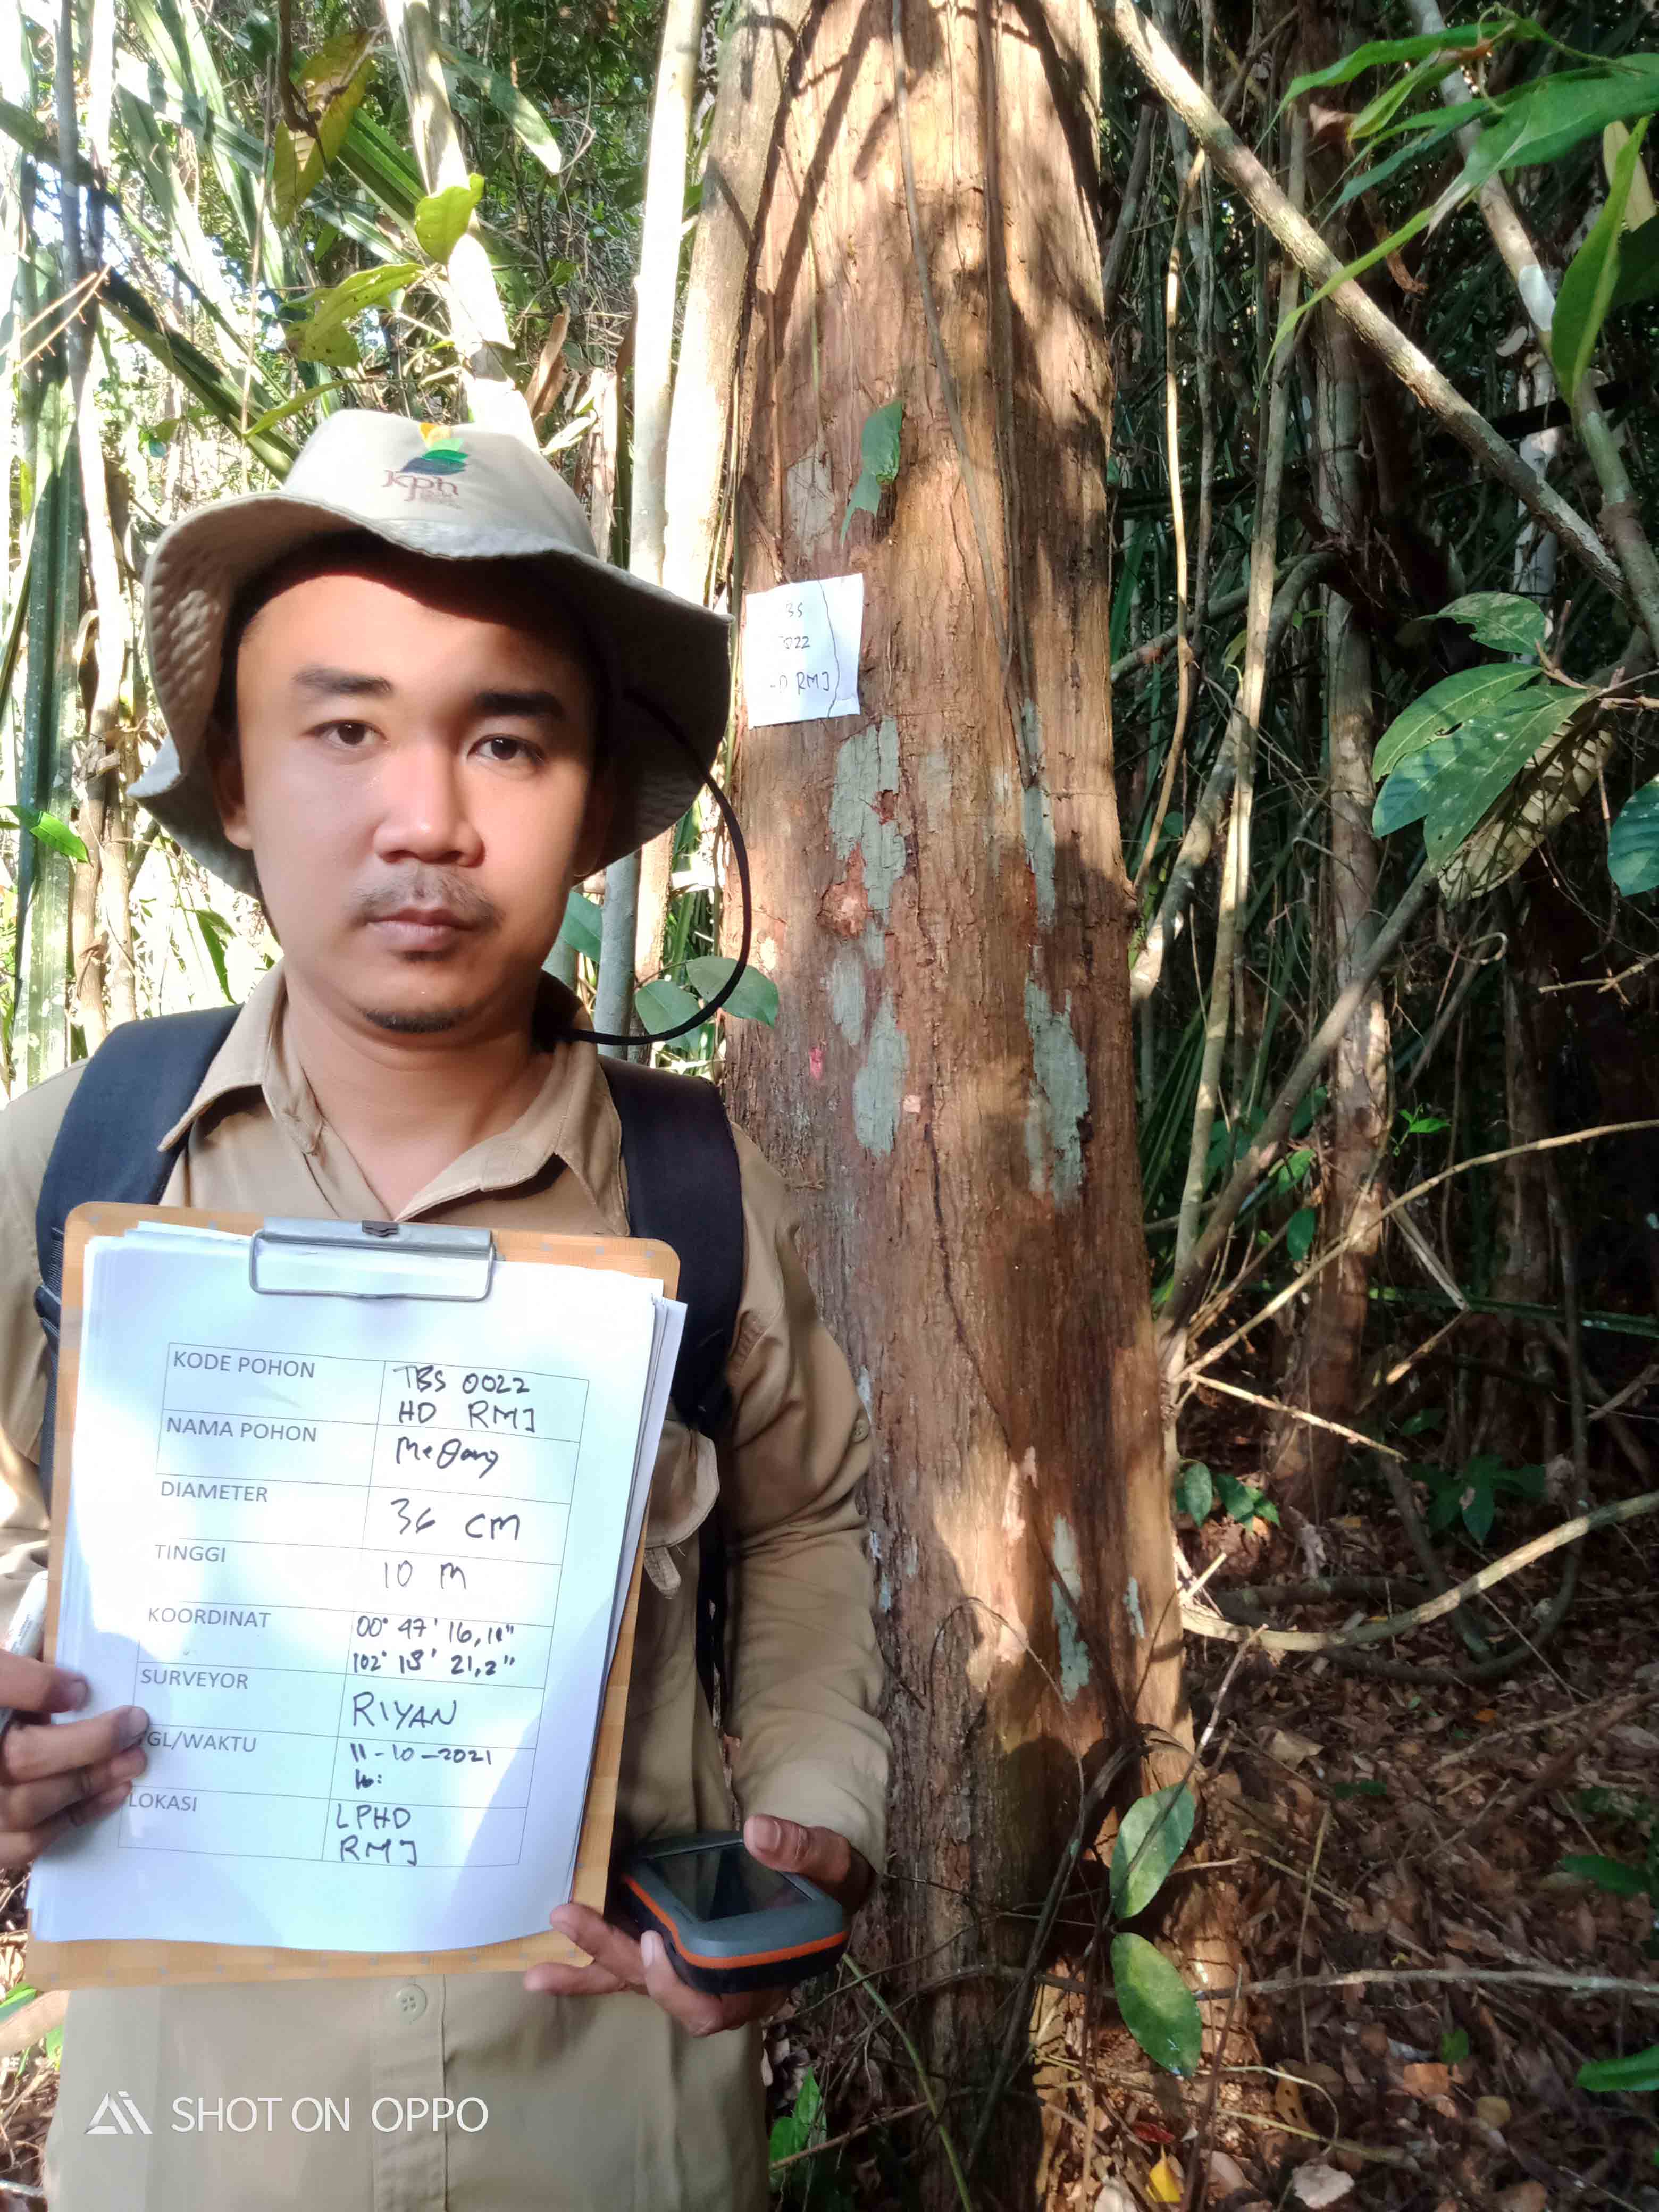 kph
3S
022
-D RMJ
KODE POHON TBS 0022
HD RMJ
NAMA POHON Medang
DIAMETER 36 CM
TINGGI 10 M
KOORDINAT 00° 47' 16,11"
102° 18' 21,2"
SURVEYOR RIYAN
GL/WAKTU 11-10-2021
16:
LOKASI LPHD
RMJ
SHOT ON OPPO